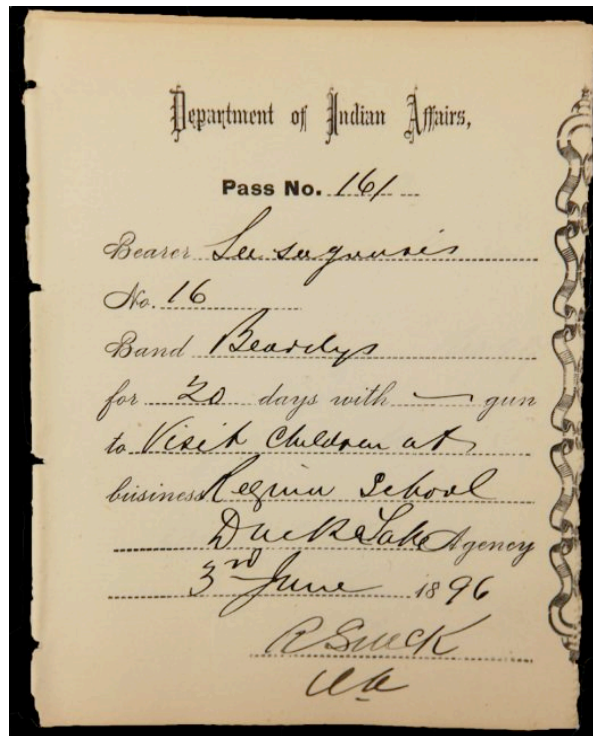 Department of Indian Affairs,
Pass No. 161
Bearer
No. 16
Band Beardys
for 20 days with — gun
to Visit children at
business Regina School
Duck Lake Agency
3rd June 1896